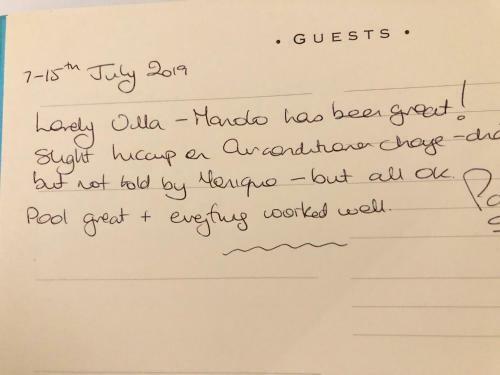 • GUESTS •
7-15th July 2019
Lovely Villa - Manolo has been great!
Slight hiccup on Airconditioner charge -
but not told by - but all OK.
Pool great + everything worked well.